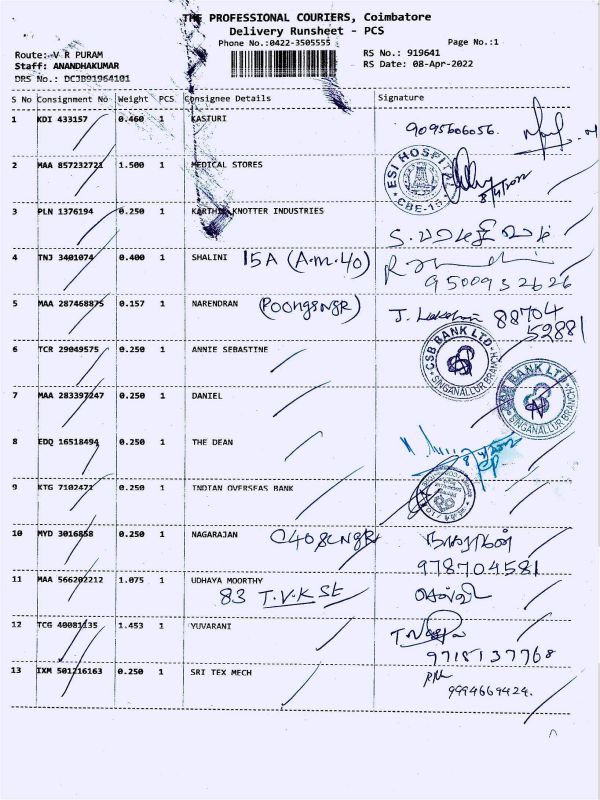 THE PROFESSIONAL COURIERS, Coimbatore
Delivery Runsheet - PCS
Phone No.:0422-3505555
Page No.:1
Route: V R PURAM
RS No.: 919641
Staff: ANANDHAKUMAR
RS Date: 08-Apr-2022
DRS No.: DCJB91964101
S No Consignment No Weight PCS Consignee Details Signature
1 KDI 433157 0.460 1 KASTURI 9095606056.
2 MAA 857232721 1.500 1 MEDICAL STORES
ESI HOSPITAL CBE-15
3 PLN 1376194 0.250 1 KARTHIK KNOTTER INDUSTRIES
4 TNJ 3401074 0.400 1 SHALINI 15A (A.M.40)
9500932626
5 MAA 287468875 0.157 1 NARENDRAN (POONGSNGR) 88704
52881
CSB BANK LTD SINGANALLUR BRANCH
6 TCR 29049575 0.250 1 ANNIE SEBASTINE
CSB BANK LTD SINGANALLUR BRANCH
7 MAA 283397247 0.250 1 DANIEL
8 EDQ 16518494 0.250 1 THE DEAN
9 KTG 7102471 0.250 1 INDIAN OVERSEAS BANK
10 MYD 3016858 0.250 1 NAGARAJAN நாகராஜன்
978704581
11 MAA 566202212 1.075 1 UDHAYA MOORTHY
83 T.V.K St
12 TCG 40081135 1.453 1 YUVARANI
9718137768
13 IXM 501216163 0.250 1 SRI TEX MECH
9994669424.